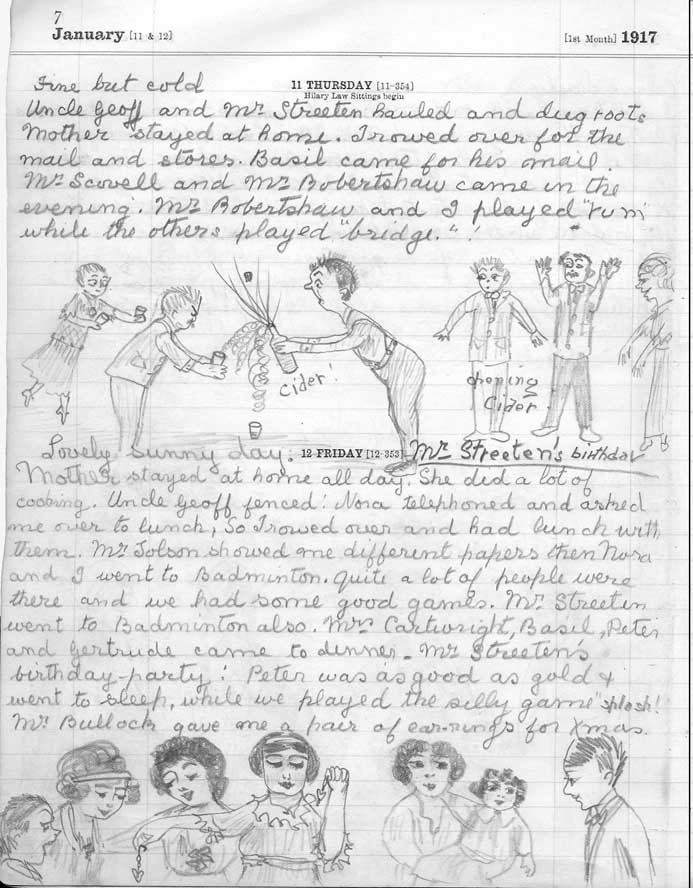 7
January [11 & 12] [1st Month] 1917
Fine but cold 11 THURSDAY [11-354]
Hilary Law Sittings begin
Uncle Geoff and Mr Streeten hauled and dug roots
Mother stayed at home. I rowed over for the
mail and stores. Basil came for his mail.
Mr Scovell and Mr Robertshaw came in the
evening. Mr Robertshaw and I played "rum"
while the others played "bridge." !
cider!
opening
Cider.
Lovely sunny day. 12 FRIDAY [12-353] Mr Streeten's birthday
Mother stayed at home all day. She did a lot of
cooking. Uncle Geoff fenced! Nora telephoned and asked
me over to lunch, so I rowed over and had lunch with
them. Mr Jolson showed me different papers then Nora
and I went to Badminton. Quite a lot of people were
there and we had some good games. Mr Streeten
went to Badminton also. Mrs Cartwright, Basil, Peter
and Gertrude came to dinner. Mr Streeten's
birthday-party! Peter was as good as gold &
went to sleep, while we played the silly game "splosh!
Mr Bullock gave me a pair of ear-rings for Xmas.